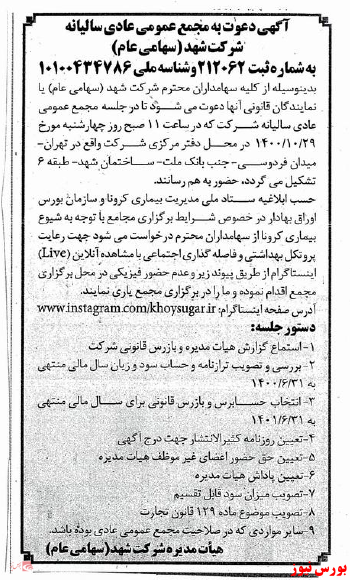 آگهی دعوت به مجمع عمومی عادی سالیانه
شرکت شهد (سهامی عام)
به شماره ثبت ۲۱۲۰۶۲ و شناسه ملی ۱۰۱۰۰۴۳۴۷۸۶
بدینوسیله از کلیه سهامداران محترم شرکت شهد (سهامی عام) یا
نمایندگان قانونی آنها دعوت می شود تا در جلسه مجمع عمومی
عادی سالیانه شرکت که در ساعت ۱۱ صبح روز چهارشنبه مورخ
۱۴۰۰/۱۰/۲۹ در محل دفتر مرکزی شرکت واقع در تهران-
میدان فردوسی- جنب بانک ملت- ساختمان شهد- طبقه ۶
تشکیل می گردد، حضور به هم رسانند.
حسب ابلاغیه ستاد ملی مدیریت بیماری کرونا و سازمان بورس
اوراق بهادار در خصوص شرایط برگزاری مجامع با توجه به شیوع
بیماری کرونا از سهامداران محترم درخواست می شود جهت رعایت
پروتکل بهداشتی و فاصله گذاری اجتماعی با مشاهده آنلاین (Live)
اینستاگرام از طریق پیوند زیر و عدم حضور فیزیکی در محل برگزاری
مجمع اقدام نموده و ما را در برگزاری مجمع یاری نمایند.
آدرس صفحه اینستاگرام: www.instagram.com/khoysugar.ir
دستور جلسه:
۱-استماع گزارش هیات مدیره و بازرس قانونی شرکت
۲-بررسی و تصویب ترازنامه و حساب سود و زیان سال مالی منتهی
به ۱۴۰۰/۶/۳۱
۳-انتخاب حسابرس و بازرس قانونی برای سال مالی منتهی
به ۱۴۰۱/۶/۳۱
۴-تعیین روزنامه کثیرالانتشار جهت درج آگهی
۵-تعیین حق حضور اعضای غیر موظف هیات مدیره
۶-تعیین پاداش هیات مدیره
۷-تصویب میزان سود قابل تقسیم
۸-تصویب موضوع ماده ۱۲۹ قانون تجارت
۹-سایر مواردی که در صلاحیت مجمع عمومی عادی بوده باشد.
هیات مدیره شرکت شهد (سهامی عام)
بورس نیوز